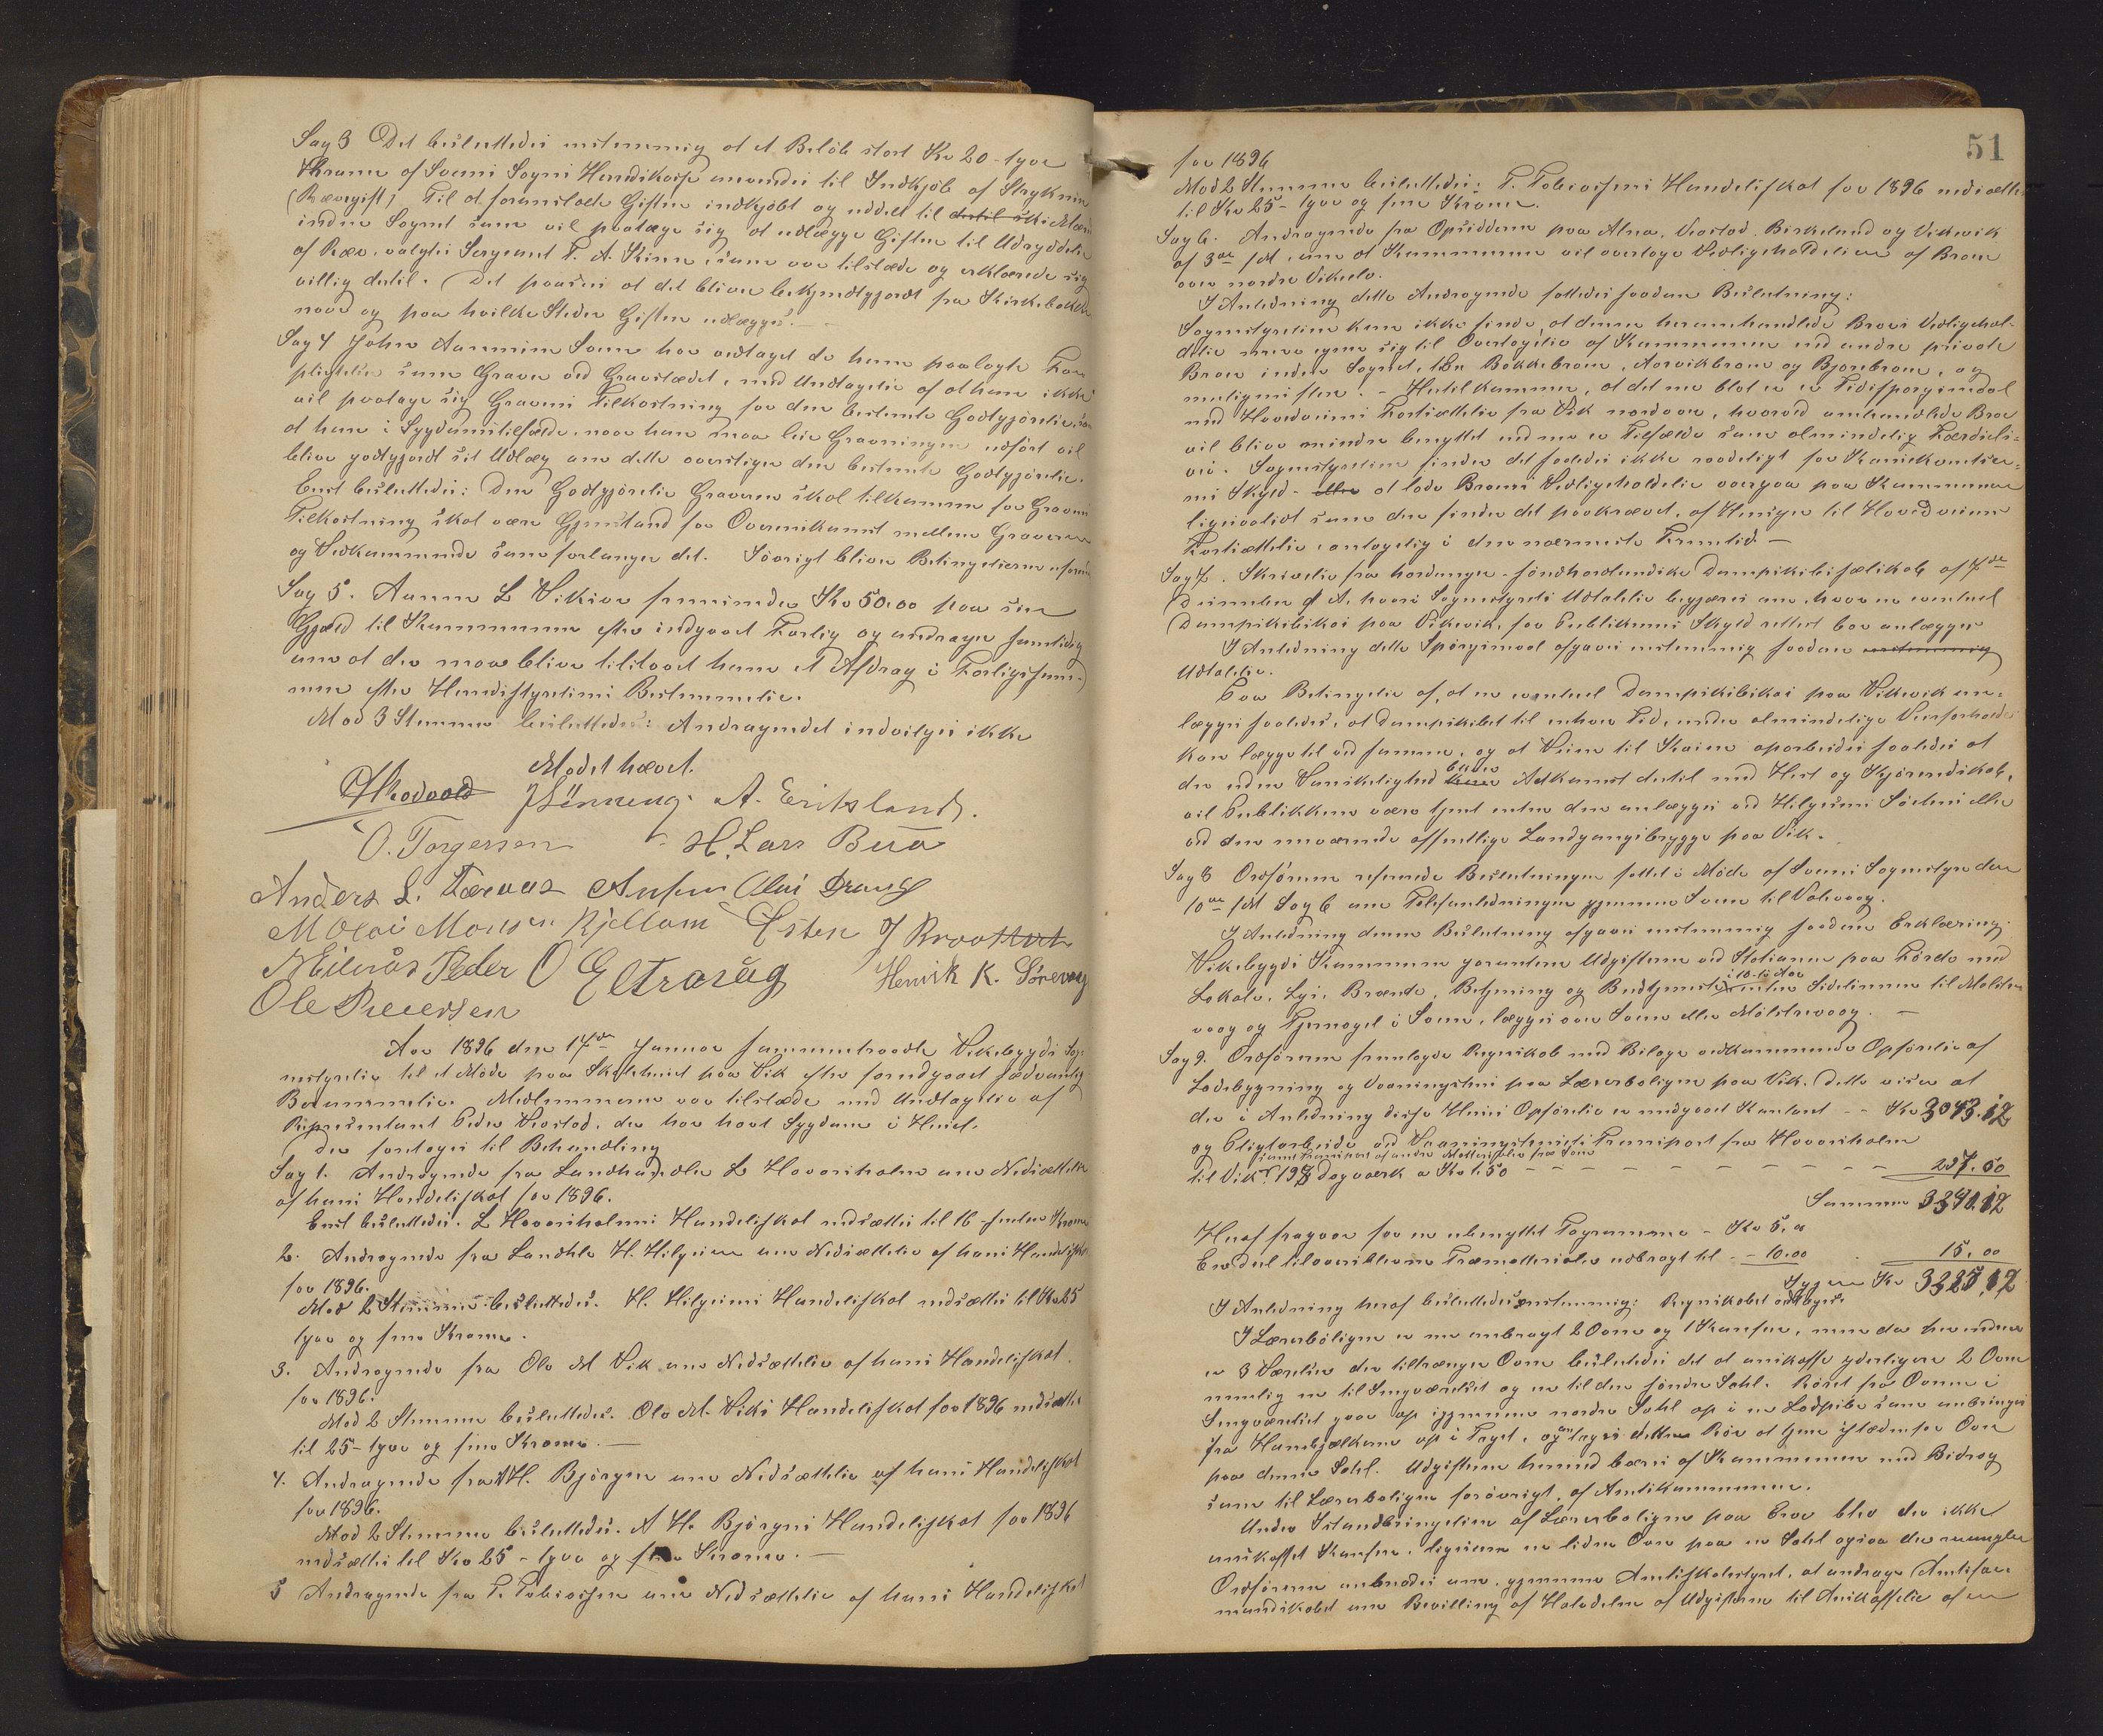 Sag 3 Det besluttedes enstemmig at et Beløb stort Kr 20 - tyve
Kroner af Sveens Sogns Herredskasse anvendes til Indkjøb af Stryknin
(Rævegift) Til at foranstalte Giften indkjøbt og uddelt til Mænd
inden Sognet som vil paatage sig at udlægge Giften til Udryddelse
af Ræv, valgtes Sergeant T. A. Skinn, som var tilstæde og erklærede sig
villig dertil. Det paasees at det bliver bekjendtgjordt fra Kirkebakken
naar og paa hvilke Steder Giften udlægges.
Sag 4 John Aamunn Sveen har vedtaget de ham paalagte For
pligtelser som Graver ved Gravstædet, med Undtagelse af at han ikke
vil paatage sig Gravens Tilkastning for den bestemte Godtgjørelse, samt
at han i Sygdomstilfælde, naar han maa leie Gravningen udført vil
blive godtgjordt sit Udlæg om dette overstiger den bestemte Godtgjørelse.
Enst besluttedes: Den Godtgjørelse Graveren skal tilkomme for Gravens
Tilkastning skal være Gjenstand for Overenskomst mellem Graveren
og Vedkommende som forlanger det. Iøvrigt bliver Betingelserne uforan
Sag 5. Aamun L Viksør fremsender Kr 50.00 paa sin
Gjæld til Kommunen efter indgaaet Forlig og andrager samtidig
om at der maa blive tilstaaet ham et Afdrag i Forligssum-
men efter Herredsstyrelsens Bestemmelse.
Mod 3 Stemmer besluttedes: Andragendet indvilges ikke
Mødet hævet.
A. Eriksland.
O. Torgersen H. Lars Bua
Anders L. Tærvas
M Olai Monsen Kjellam Østen J
Peder O Eltravåg Henrik K. Sørevaag
Ole Pedersen
Aar 1896 den 17de Januar sammentraadte Vikebygds Sog-
nestyrelse til et Møde paa Skolehuset paa Vik efter forudgaaet sædvanlig
Berammelse. Medlemmerne var tilstæde med Undtagelse af
Repræsentant Peder Vestad, der har havt Sygdom i Huset.
Der foretoges til Behandling
Sag 1. Andragende fra Landhandler L Hovdesholm om Nedsættelse
af hans Handelsskat for 1896.
Enst besluttedes. L Hovdesholms Handelsskat nedsættes til 16 - seksten Kroner
2. Andragende fra Landhle H. Hilgesen om Nedsættelse af hans Handelsskat
for 1896.
Mod 2 Stemmer besluttedes. H. Hilgesens Handelsskat nedsættes til Kr 25
tyve og fem Kroner.
3. Andragende fra Ole M Vik om Nedsættelse af hans Handelsskat
for 1896.
Mod 2 Stemmer besluttedes. Ole M. Viks Handelsskat for 1896 nedsættes
til 25 - tyve og fem Kroner. —
4. Andragende fra A H. Bjørgen om Nedsættelse af hans Handelsskat
for 1896.
Mod 2 Stemmer besluttedes. A H. Bjørgens Handelsskat for 1896
nedsættes til Kr 25 - tyve og fem Kroner. —
5 Andragende fra T. Tobiassen om Nedsættelse af hans Handelsskat
51
for 1896
Mod 2 Stemmer besluttedes: T. Tobiassens Handelsskat for 1896 nedsættes
til Kr 25 - tyve og fem Kroner.
Sag 6. Andragende fra Opsiddere paa Alna, Vestad, Birkeland og Vikevik
af 3de ds, om at Kommunen vil overtage Vedligeholdelsen af Broen
over nordre Vikeelv.
I Anledning dette Andragende fattedes saadan Beslutning:
Sognestyrelsen kan ikke finde, at denne heromhandlede Broes Vedligehol-
delse mere egner sig til Overtagelse af Kommunen end andre private
Broer inden Sognet, Bekkebroen, Aarvikbroen og Bjorebroen, og
muligens flere. - Hertil kommer, at det nu blot er et Tidsspørgsmaal
med Hovedveiens Fortsættelse fra Vik nordover, hvorved omhandlede Bro
vil blive mindre benyttet end nu er Tilfælde som almindelig Færdsels-
vei. Sognestyrelsen finder det saaledes ikke raadeligt for Konsekventser-
nes Skyld - at lade Broens Vedligeholdelse overgaa paa Kommunen
ligesaalidt som den finder det paakrævet, af Hensyn til Hovedveiens
Fortsættelse antagelig i den nærmeste Fremtid. —
Sag 7. Skrivelse fra hardanger-søndhordlandske Dampskibsselskab af 7de
December f A, hvori Sognestyrets Udtalelse begjæres om, hvor en eventuel
Dampskibskai paa Vikevik, for Publikums Skyld rettest bør anlægges
I Anledning dette Spørgsmaal afgaves enstemmig saadan
Udtalelse.
Paa Betingelse af, at en eventuel Dampskibskai paa Vikevik an-
lægges saaledes, at Dampskibet til enhver Tid, under almindelige Veirforholde
kan lægge til ved samme, og at Veien til Kaien oparbeides saaledes at
der uden Vanskelighed bliver Adkomst dertil med Hest og Kjøreredskab,
vil Publikum være tjent enten den anlægges ved Hilgesens Søehus eller
ved den nuværende offentlige Landgangsbrygge paa Vik.
Sag 8 Ordføreren refererede Beslutningen fattet i Møde af Sveens Sognestyre den
10de ds Sag 6 om Telefonledningen gjennem Sveen til Valevaag.
I Anledning denne Beslutning afgaves enstemmig saadan Erklæring.
Vikebygds Kommune garanterer Udgifterne ved Stationen paa Førde med
Lokale, Lys, Brænde, Betjening og Budtjeneste enten Sidelinien til Molster
vaag og Tjernagel i Sveen, lægges over Sveen eller Mølstrevaag. —
Sag 9. Ordføreren fremlagde Regnskab med Bilage vedkommende Opførelse af
Ladebygning og Vaaningshus paa Lærerboligen paa Vik. Dette viser at
der i Anledning disse Huses Opførelse er medgaaet Kontant - - Kr 3043.12
og Pligtarbeide ved Vaaningshusets Transport fra Hovdesholm
samt Transport af andre Materialier fra Sveen
til Vik 198 dagværk a Kr 1.50 - - - - - - 297.50
Summa 3340.12
Heraf fragaar for en ubenyttet Tagramme - Kr 5,00
En del tiloversblevne Træmaterialer udbragt til - - 10.00 15.00
Igjen Kr 3325.12
I Anledning heraf besluttedes enstemmig: Regnskabet vedtages.
I Lærerboligen er nu anbragt 2 Ovne og 1 Komfur, men da her endnu
er 3 Værelser der tiltrænger Ovne besluttedes det at anskaffe yderligere 2 Ovne
nemlig en til Sengeværelset og en til den søndre Sahl. Røret fra Ovnen i
Sengeværelset gaar op igjennem nordre Sahl op i en Ladpibe som anbringes
fra Hanebjælkerne op i Taget, og dette Rør at tjene istædenfor Ovn
paa denne Sahl. Udgifterne herved bæres af Kommunen med Bidrag
som til Lærerboligen forøvrigt, af Amtskommunen.
Under Istandbringelsen af Lærerboligen paa Eroe blev der ikke
anskaffet Komfur, ligesom en liden Ovn paa en Sahl ogsaa der mangler
Ordføreren anbrodes om, gjennem Amtsskolestyret, at andrage Amtsfor-
mandskabet om Bevilling af Halvdelen af Udgifterne til Anskaffelse af en